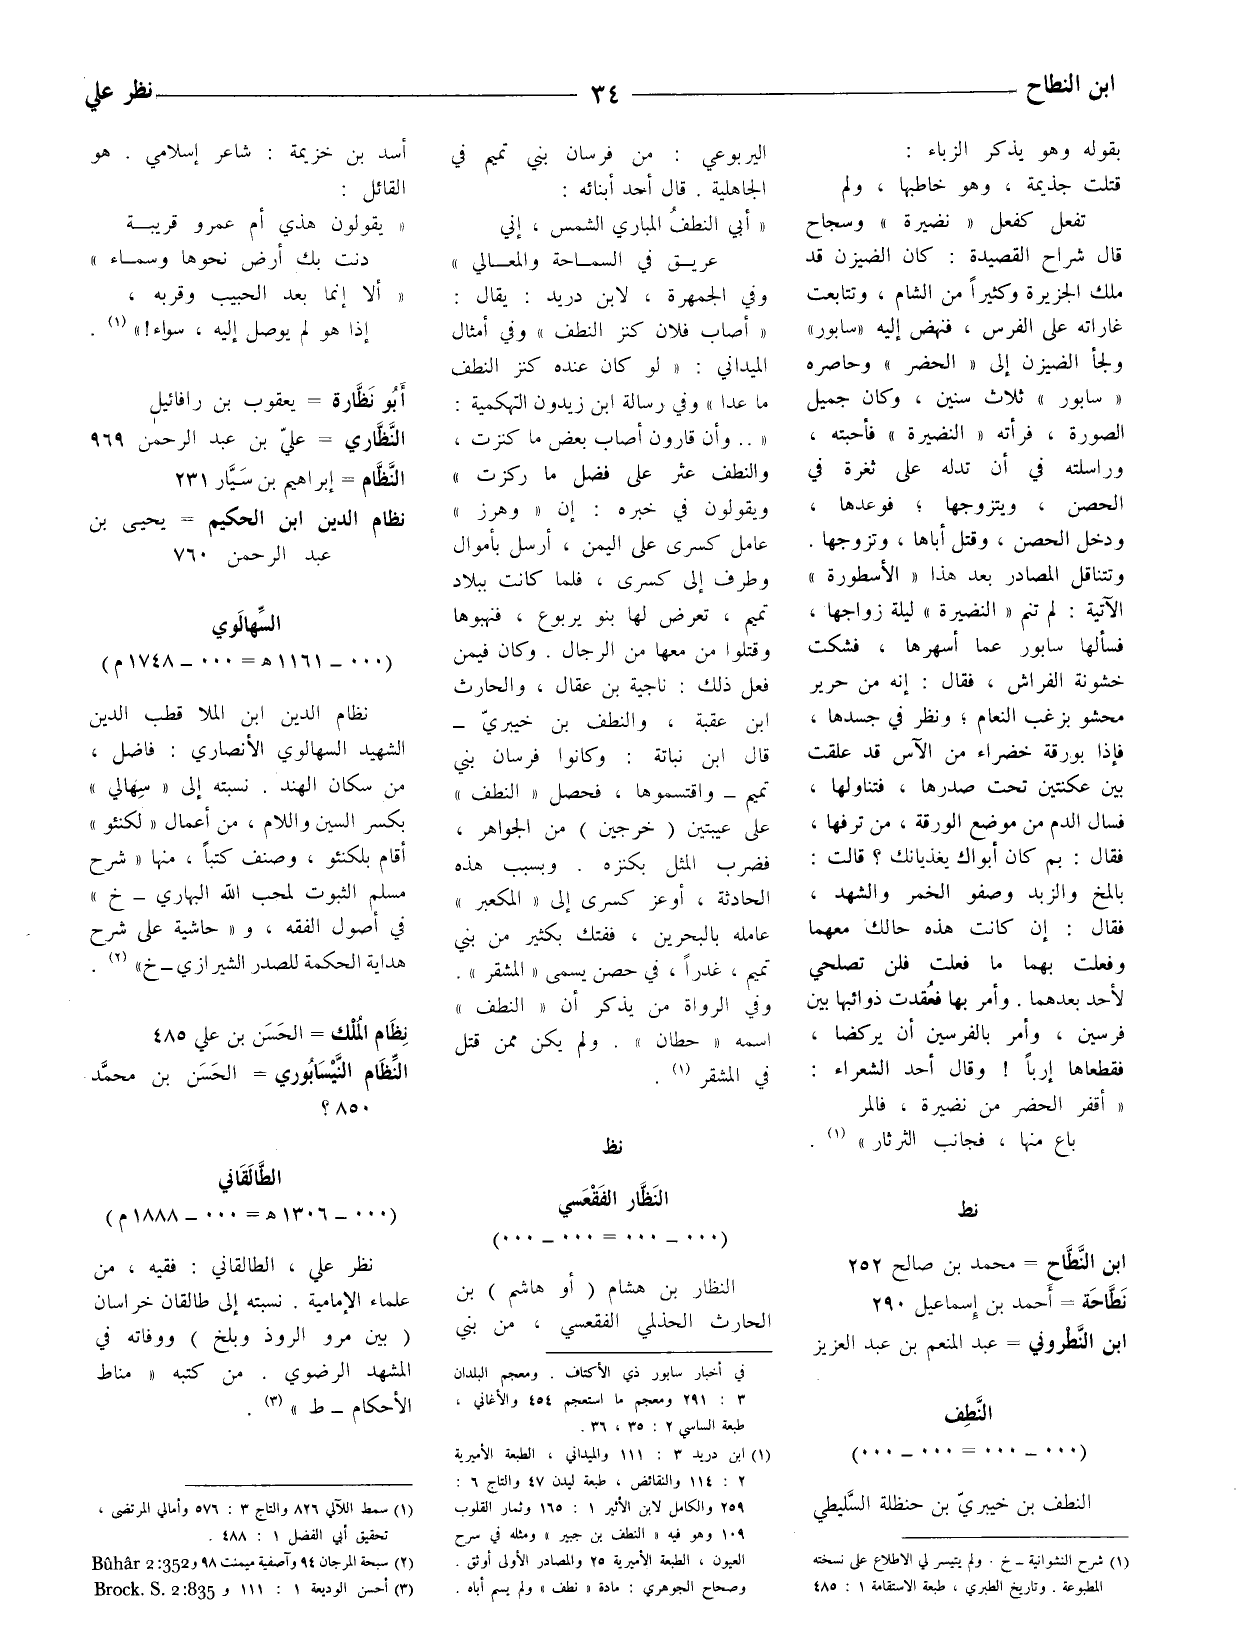 ابن النطاح
٣٤
نظر علي
بقوله وهو يذكر الزباء :
قتلت جذيمة ، وهو خاطبها ، ولم
تفعل كفعل « نضيرة » وسجاح
قال شراح القصيدة : كان الضيزن قد
ملك الجزيرة وكثيراً من الشام ، وتتابعت
غاراته على الفرس ، فنهض إليه «سابور»
ولجأ الضيزن إلى « الحضر » وحاصره
« سابور » ثلاث سنين ، وكان جميل
الصورة ، فرأته « النضيرة » فأحبته ،
وراسلته في أن تدله على ثغرة في
الحصن ، ويتزوجها ؛ فوعدها ،
ودخل الحصن ، وقتل أباها ، وتزوجها .
وتتناقل المصادر بعد هذا « الأسطورة »
الآتية : لم تنم « النضيرة » ليلة زواجها ،
فسألها سابور عما أسهرها ، فشكت
خشونة الفراش ، فقال : إنه من حرير
محشو بزغب النعام ؛ ونظر في جسدها ،
فإذا بورقة خضراء من الآس قد علقت
بين عكنتين تحت صدرها ، فتناولها ،
فسال الدم من موضع الورقة ، من ترفها ،
فقال : بم كان أبواك يغذيانك ؟ قالت :
بالمخ والزبد وصفو الخمر والشهد ،
فقال : إن كانت هذه حالك معهما
وفعلت بهما ما فعلت فلن تصلحي
لأحد بعدهما . وأمر بها فعُقدت ذوائبها بين
فرسين ، وأمر بالفرسين أن يركضا ،
فقطعاها إرباً ! وقال أحد الشعراء :
« أقفر الحضر من نضيرة ، فالمر
باع منها ، فجانب الثرثار » (١) .
نط
ابن النَّطَّاح = محمد بن صالح ٢٥٢
نَطَّاحَة = أَحمد بن إِسماعيل ٢٩٠
ابن النَّطْروني = عبد المنعم بن عبد العزيز
النَّطِف
(٠٠٠ ــ ٠٠٠ = ٠٠٠ ــ ٠٠٠)
النطف بن خيبريّ بن حنظلة السَّليطي
(١) شرح النشوانية ــ خ . ولم يتيسر لي الاطلاع على نسخته
المطبوعة . وتاريخ الطبري ، طبعة الاستقامة ١ : ٤٨٥
اليربوعي : من فرسان بني تميم في
الجاهلية . قال أحد أبنائه :
« أبي النطفُ المباري الشمس ، إني
عريــق في السمــاحة والمعــالي »
وفي الجمهرة ، لابن دريد : يقال :
« أصاب فلان كنز النطف » وفي أمثال
الميداني : « لو كان عنده كنز النطف
ما عدا » وفي رسالة ابن زيدون التهكمية :
« .. وأن قارون أصاب بعض ما كنزت ،
والنطف عثر على فضل ما ركزت »
ويقولون في خبره : إن « وهرز »
عامل كسرى على اليمن ، أرسل بأموال
وطرف إلى كسرى ، فلما كانت ببلاد
تميم ، تعرض لها بنو يربوع ، فنهبوها
وقتلوا من معها من الرجال . وكان فيمن
فعل ذلك : ناجية بن عقال ، والحارث
ابن عقبة ، والنطف بن خيبريّ ــ
قال ابن نباتة : وكانوا فرسان بني
تميم ــ واقتسموها ، فحصل « النطف »
على عيبتين ( خرجين ) من الجواهر ،
فضرب المثل بكنزه . وبسبب هذه
الحادثة ، أوعز كسرى إلى « المكعبر »
عامله بالبحرين ، ففتك بكثير من بني
تميم ، غدراً ، في حصن يسمى « المشقر » .
وفي الرواة من يذكر أن « النطف »
اسمه « حطان » . ولم يكن ممن قتل
في المشقر (١) .
نظ
النَظَّار الفَقْعَسي
(٠٠٠ ــ ٠٠٠ = ٠٠٠ ــ ٠٠٠)
النظار بن هشام ( أو هاشم ) بن
الحارث الحذلمي الفقعسي ، من بني
في أخبار سابور ذي الأكتاف . ومعجم البلدان
٣ : ٢٩١ ومعجم ما استعجم ٤٥٤ والأغاني ،
طبعة الساسي ٢ : ٣٥ ، ٣٦ .
(١) ابن دريد ٣ : ١١١ والميداني ، الطبعة الأميرية
٢ : ١١٤ والنقائض ، طبعة ليدن ٤٧ والتاج ٦ :
٢٥٩ والكامل لابن الأثير ١ : ١٦٥ وثمار القلوب
١٠٩ وهو فيه « النطف بن جبير » ومثله في سرح
العيون ، الطبعة الأميرية ٢٥ والمصادر الأولى أوثق .
وصحاح الجوهري : مادة « نطف » ولم يسم أباه .
أسد بن خزيمة : شاعر إسلامي . هو
القائل :
« يقولون هذي أم عمرو قريبــة
دنت بك أرض نحوها وسمــاء »
« ألا إنما بعد الحبيب وقربه ،
إذا هو لم يوصل إليه ، سواء!» (١) .
أَبُو نَظَّارة = يعقوب بن رافائيل
النَّظَّاري = عليّ بن عبد الرحمن ٩٦٩
النَّظَّام = إبراهيم بن سَيَّار ٢٣١
نظام الدين ابن الحكيم = يحيى بن
عبد الرحمن ٧٦٠
السِّهالَوي
(٠٠٠ ــ ١١٦١ ه = ٠٠٠ ــ ١٧٤٨ م)
نظام الدين ابن الملا قطب الدين
الشهيد السهالوي الأنصاري : فاضل ،
من سكان الهند . نسبته إلى « سِهالي »
بكسر السين واللام ، من أعمال « لكنئو »
أقام بلكنئو ، وصنف كتباً ، منها « شرح
مسلم الثبوت لمحب الله البهاري ــ خ »
في أصول الفقه ، و « حاشية على شرح
هداية الحكمة للصدر الشيرازي ــ خ» (٢) .
نِظَام المُلْك = الحَسَن بن علي ٤٨٥
النِّظَام النَّيْسَابُوري = الحَسَن بن محمَّد
٨٥٠ ؟
الطَّالَقَاني
(٠٠٠ ــ ١٣٠٦ ه = ٠٠٠ ــ ١٨٨٨ م)
نظر علي ، الطالقاني : فقيه ، من
علماء الإمامية . نسبته إلى طالقان خراسان
( بين مرو الروذ وبلخ ) ووفاته في
المشهد الرضوي . من كتبه « مناط
الأحكام ــ ط » (٣) .
(١) سمط اللآلي ٨٢٦ والتاج ٣ : ٥٧٦ وأمالي المرتضى ،
تحقيق أبي الفضل ١ : ٤٨٨ .
(٢) سبحة المرجان ٩٤ وآصفية ميمنت ٩٨ و Bûhâr 2:352
(٣) أحسن الوديعة ١ : ١١١ و Brock. S. 2:835